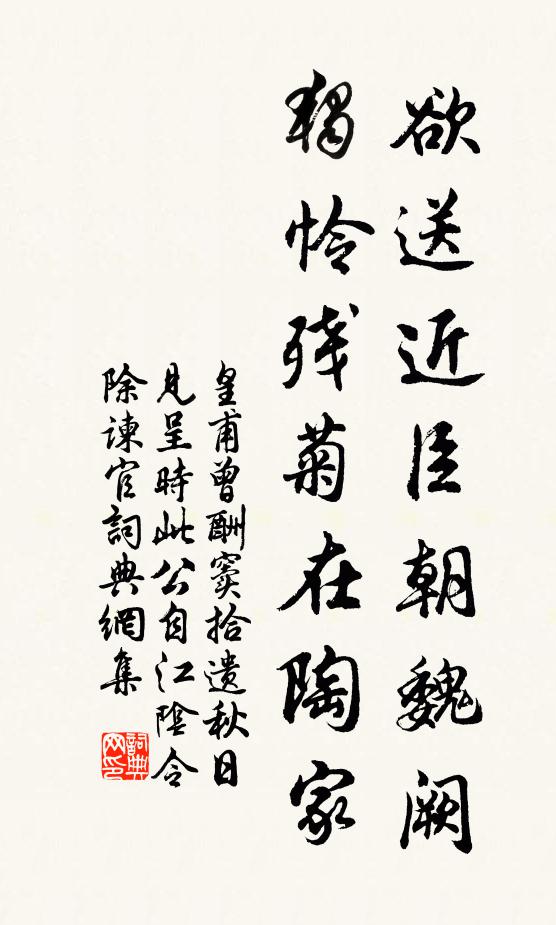 欲送近臣朝魏阙
独怜残菊在陶家
皇甫曾酬窦拾遗秋日
见呈時此公自江陰令
除谏官詞典網集
詞典网印